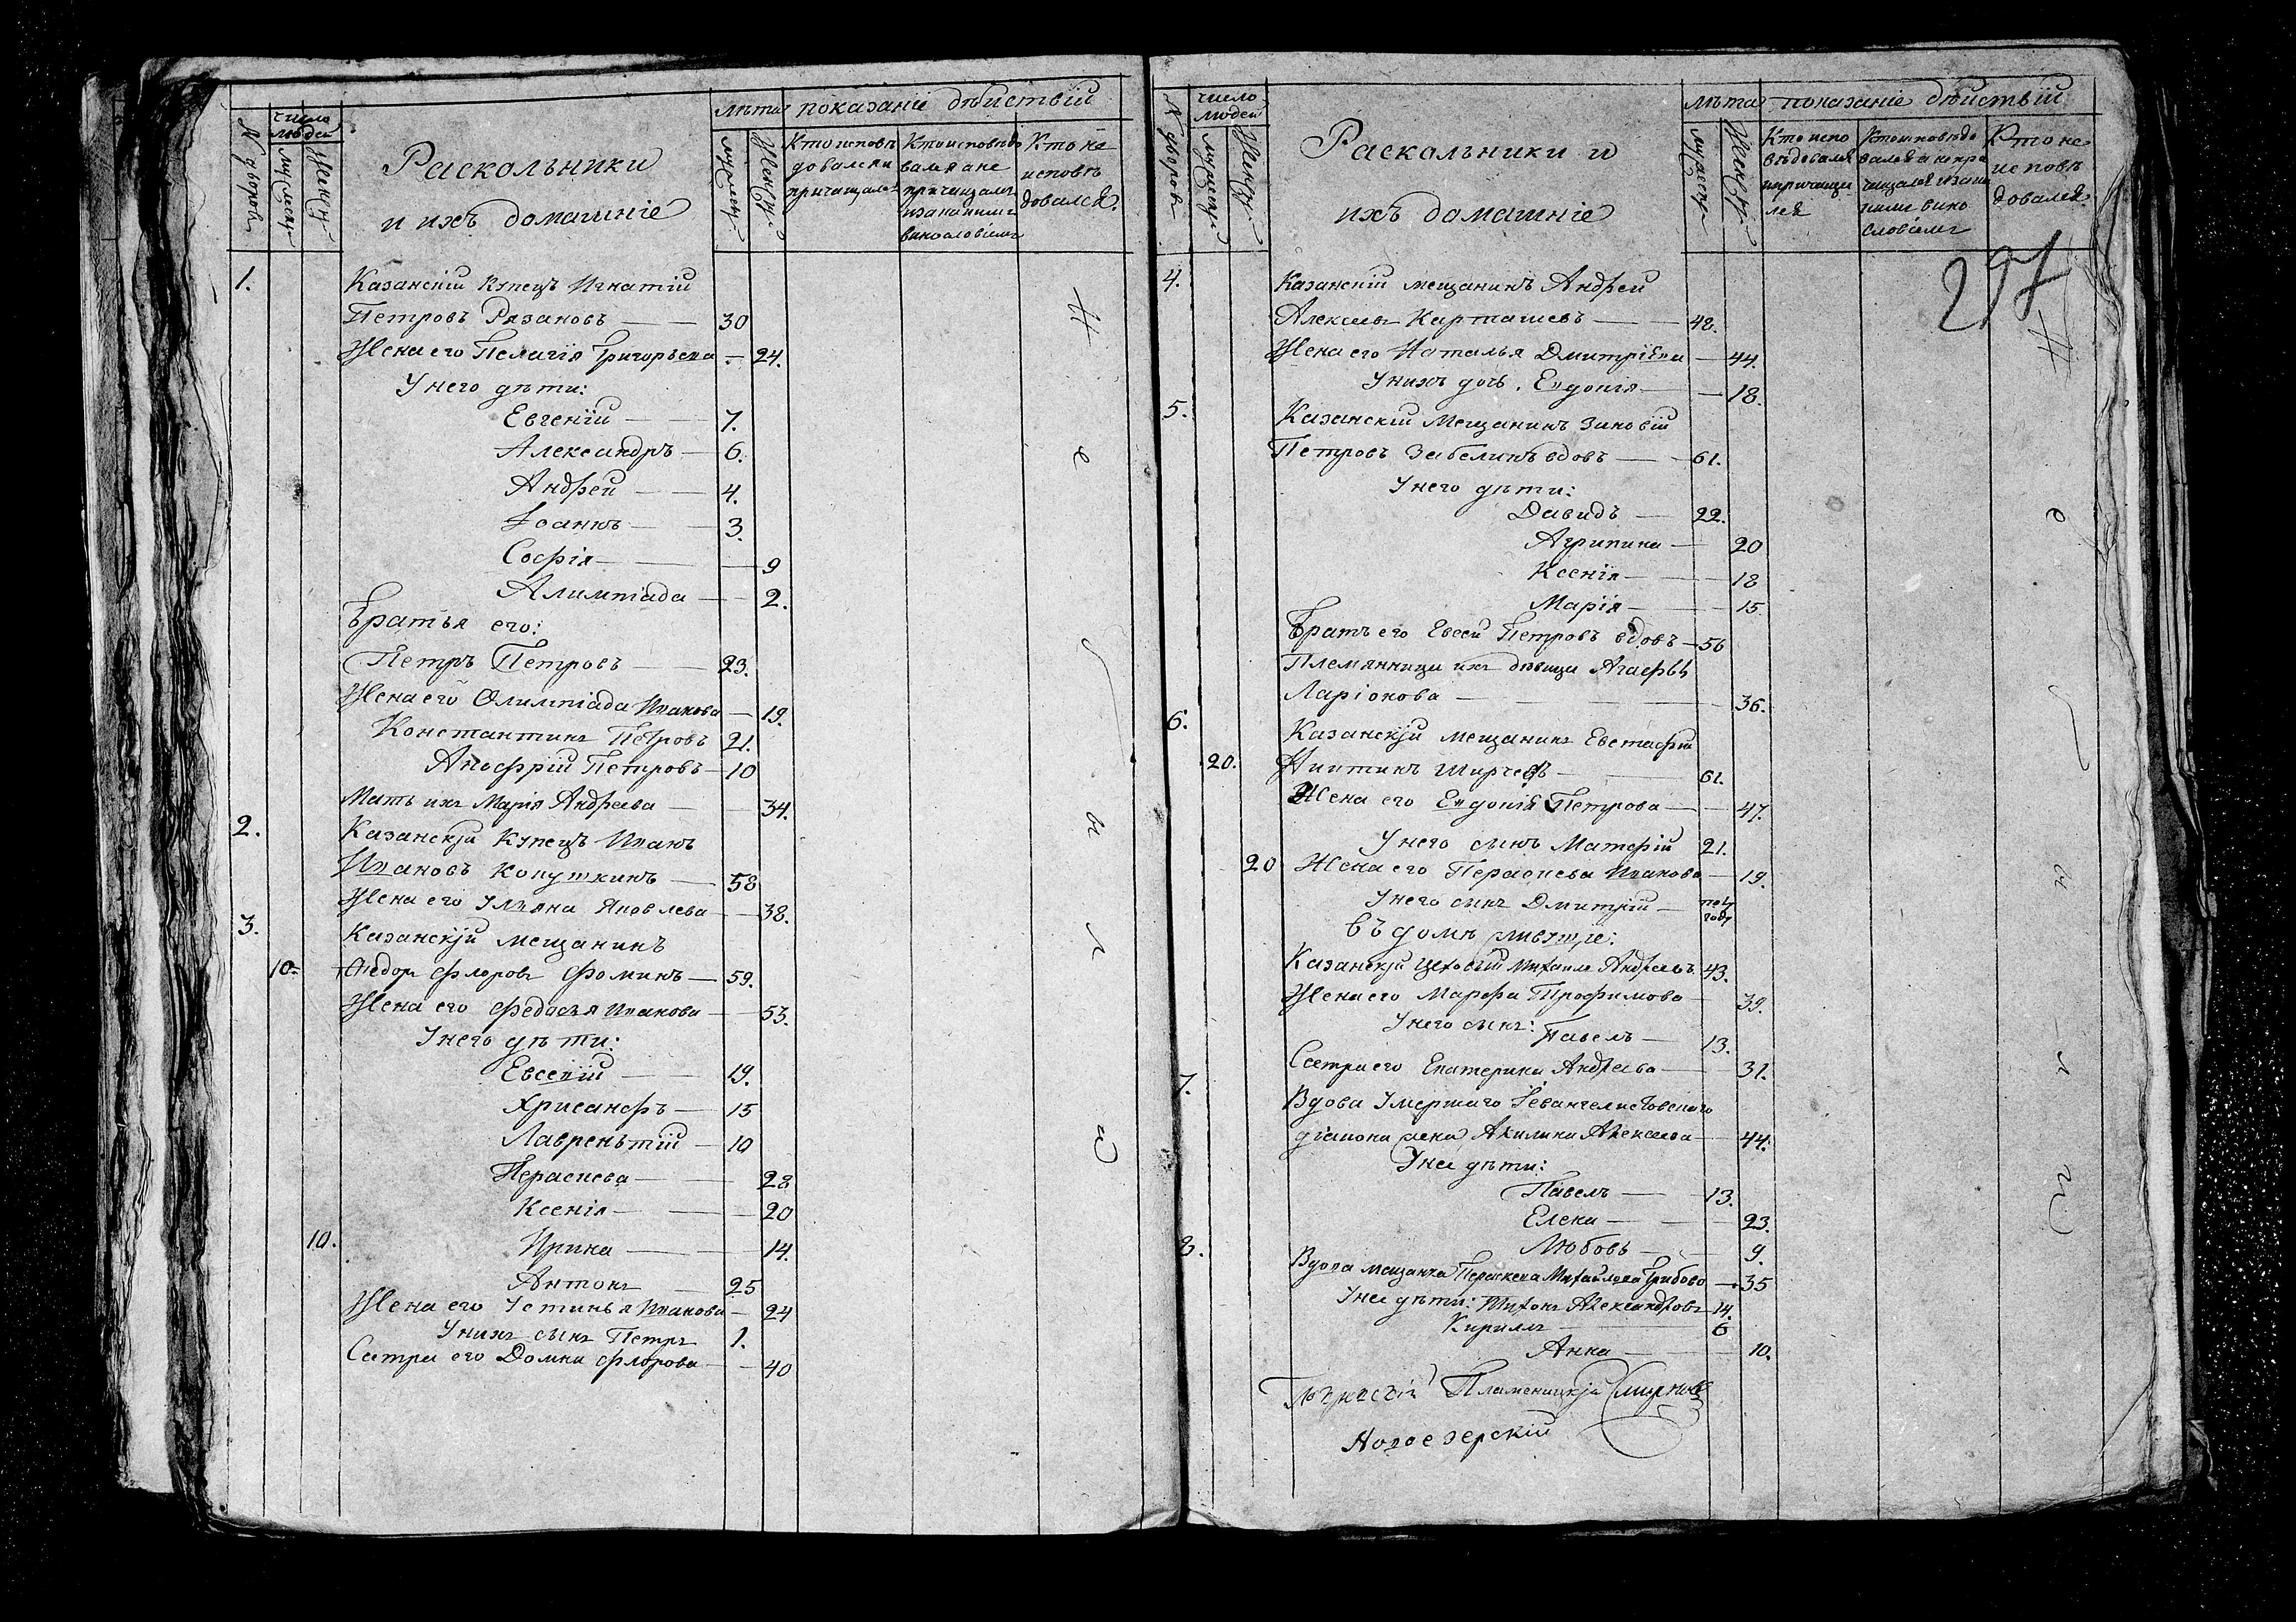 N дворовъ
число людей
мужеску
Женску
Раскольники
и ихъ домашніе
лѣта
мужеску
Женску
показаніе дѣйствій
Кто исповѣ
довался и
причащался
Кто исповѣдо
вался а не
причащался
и за какимъ
винословіемъ
Кто не
исповѣ
довался.
1.
Казанскій Купецъ Игнатій
Петровъ Рязановъ — 30
Жена его Пелагія Григорьева — 24.
У него дѣти:
Евгеній — 7.
Александръ — 6.
Андрей — 4.
Іоаннъ — 3.
Софія — 9
Алимпіада — 2.
Братья его:
Петръ Петровъ — 23.
Жена его Олимпіада Иванова — 19.
Константинъ Петровъ 21.
Анофрій Петровъ — 10
Мать ихъ Марія Андреева — 34.
2.
Казанскій Купецъ Иванъ
Ивановъ Копушкинъ — 58
Жена его Ульяна Яковлева — 38.
3.
Казанскій мещанинъ
10. Федоръ Флоровъ Фоминъ — 59.
Жена его Федосья Иванова — 53.
У него дѣти:
Евсевій — 19.
Хрисанфъ — 15
Лаврентій — 10
Параскева — 28
Ксенія — 20
10. Ирина — 14.
Антонъ — 25
Жена его Устинья Иванова — 24
У нихъ сынъ Петръ 1.
Сестра его Домна Флорова — 40
Н
е
б
ы
л
и
N дворовъ
число людей
мужеску
Женску
Раскольники и
ихъ домашніе
лѣта
мужеску
Женску
показаніе дѣйствій
Кто испо
вѣдовался
и причаща
лся
Кто исповѣдо
вался а не при
чащался и за ка
кимъ вино
словіемъ
Кто не
исповѣ
довался.
297
4.
Казанскій мещанинъ Андрей
Алексеевъ Карташевъ — 48.
Жена его Наталья Дмитріева — 44.
У нихъ дочь. Евдокія — 18.
5.
Казанскій Мещанинъ Зиновій
Петровъ Забелинъ вдовъ — 61.
У него дѣти:
Давидъ — 22.
Агрипина — 20
Ксенія — 18
Марія — 15.
Братъ его Евсей Петровъ вдовъ — 56
Племянница ихъ девица Агафья
Ларіонова — 36.
6.
Казанскій мещанинъ Евстафій
20. Никитинъ — 61.
Жена его Евдокія Петрова — 47.
У него сынъ Матфій 21.
20 Жена его Параскева Иванова — 19.
У него сынъ Дмитрій — полу года
въ домѣ живущіе:
Казанскій цеховый Михаилъ Андреевъ 43.
Жена его Марфа Трофимова — 39.
У него сынъ: Павелъ — 13.
Сестра его Екатерина Андреева — 31.
7.
Вдова Умершаго Евангелистовскаго
діакона жена Акилина Алексеева — 44.
У нея дѣти:
Павелъ — 13.
Елена — 23.
Любовь — 9.
8.
Вдова мещанка Параскева Михайлова Грибова — 35
У нея дѣти: Тихонъ Александровъ — 14.
Кириллъ — 6
Анна — 10.
Смирновъ
Новоезерскій
Н
е
б
ы
л
и